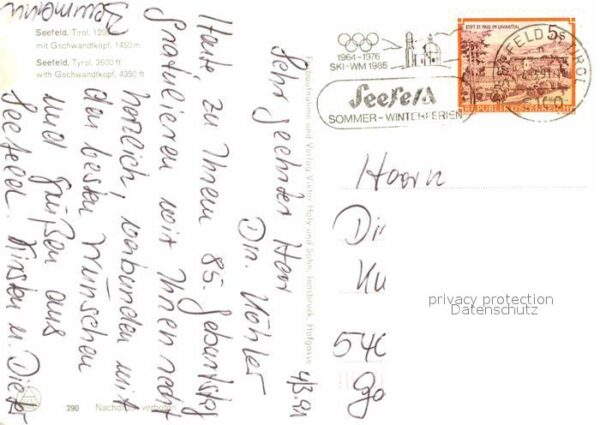 Seefeld, Tirol, 1200 m
mit Gschwandtkopf, 1490 m
Seefeld, Tyrol, 3600 ft
with Gschwandtkopf, 4350 ft
4/3.91
Sehr geehrter Herr
Dir. Köhler
Heute zu Ihrem 85. Geburtstag
Gratulieren wir Ihnen recht
herzlich, verbunden mit
den besten Wünschen
und Grüßen aus
Seefeld. Kirsten u. Dieter
Baumann
390 Nachdruck verboten
Farbaufnahme und Verlag Viktor Holy und Sohn, Innsbruck, Hofgasse
1964-1976
SKI-WM 1985
Seefeld
SOMMER - WINTERFERIEN
STIFT ST. PAUL IM LAVANTTAL
5s
REPUBLIK ÖSTERREICH
SEEFELD TIROL
Herrn
Di
Ku
540
privacy protection
Datenschutz